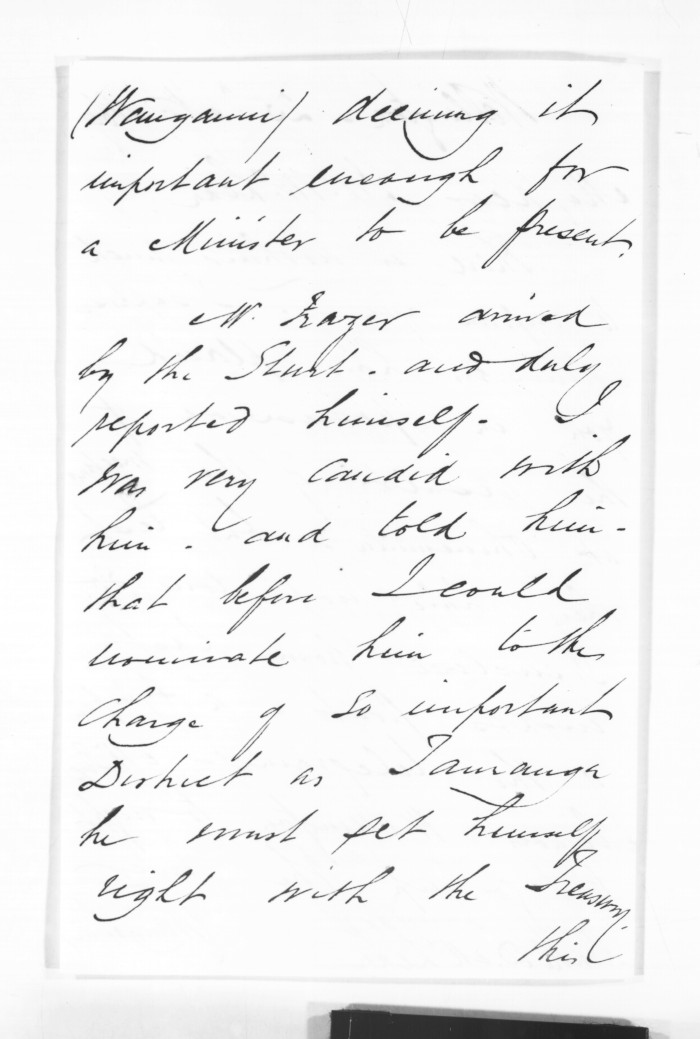 (Wanganui) deeming it
important enough for
a Minister to be present.
Mr. Frazer arrived
by the Sturt - and duly
reported himself - I
was very candid with
him - and told him -
that before I could
nominate him to the
charge of so important
District as Tauranga
he must set himself
right with the Treasury.
this